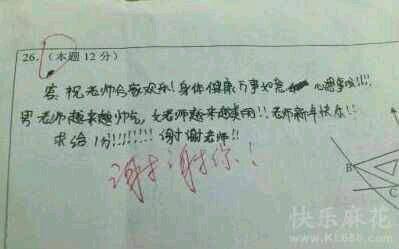 26.(本题12分)
答:祝老师合家欢乐!身体健康万事如意 心想事成!!!!
男老师越来越帅气,女老师越来越漂亮!!老师新年快乐!!
求给1分!!!!!!!!谢谢老师!!
谢谢你!
B
C
快乐麻花
www.KL688.com